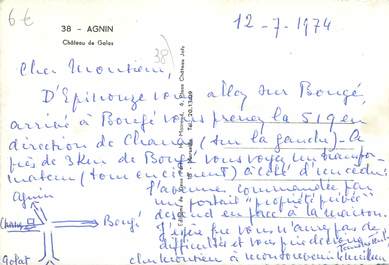 6€
38 - AGNIN
Château de Golas
38)
12-7-1974
Cher Monsieur,
D'Epinouze vous allez sur Bougé,
arrivé à Bougé vous prenez la 519 en
direction de Chanas (sur la gauche) - A
près de 3km de Bougé vous voyez un transfor-
mateur (tour en ciment) à côté d'un cèdre
l'avenue commandée par
un portail "propriété privée"
descend en face à la maison.
J'espère que vous n'aurez pas de
difficultés et vous prie de croire
cher Monsieur à
Agnin
Chanas
Bougé
Golat